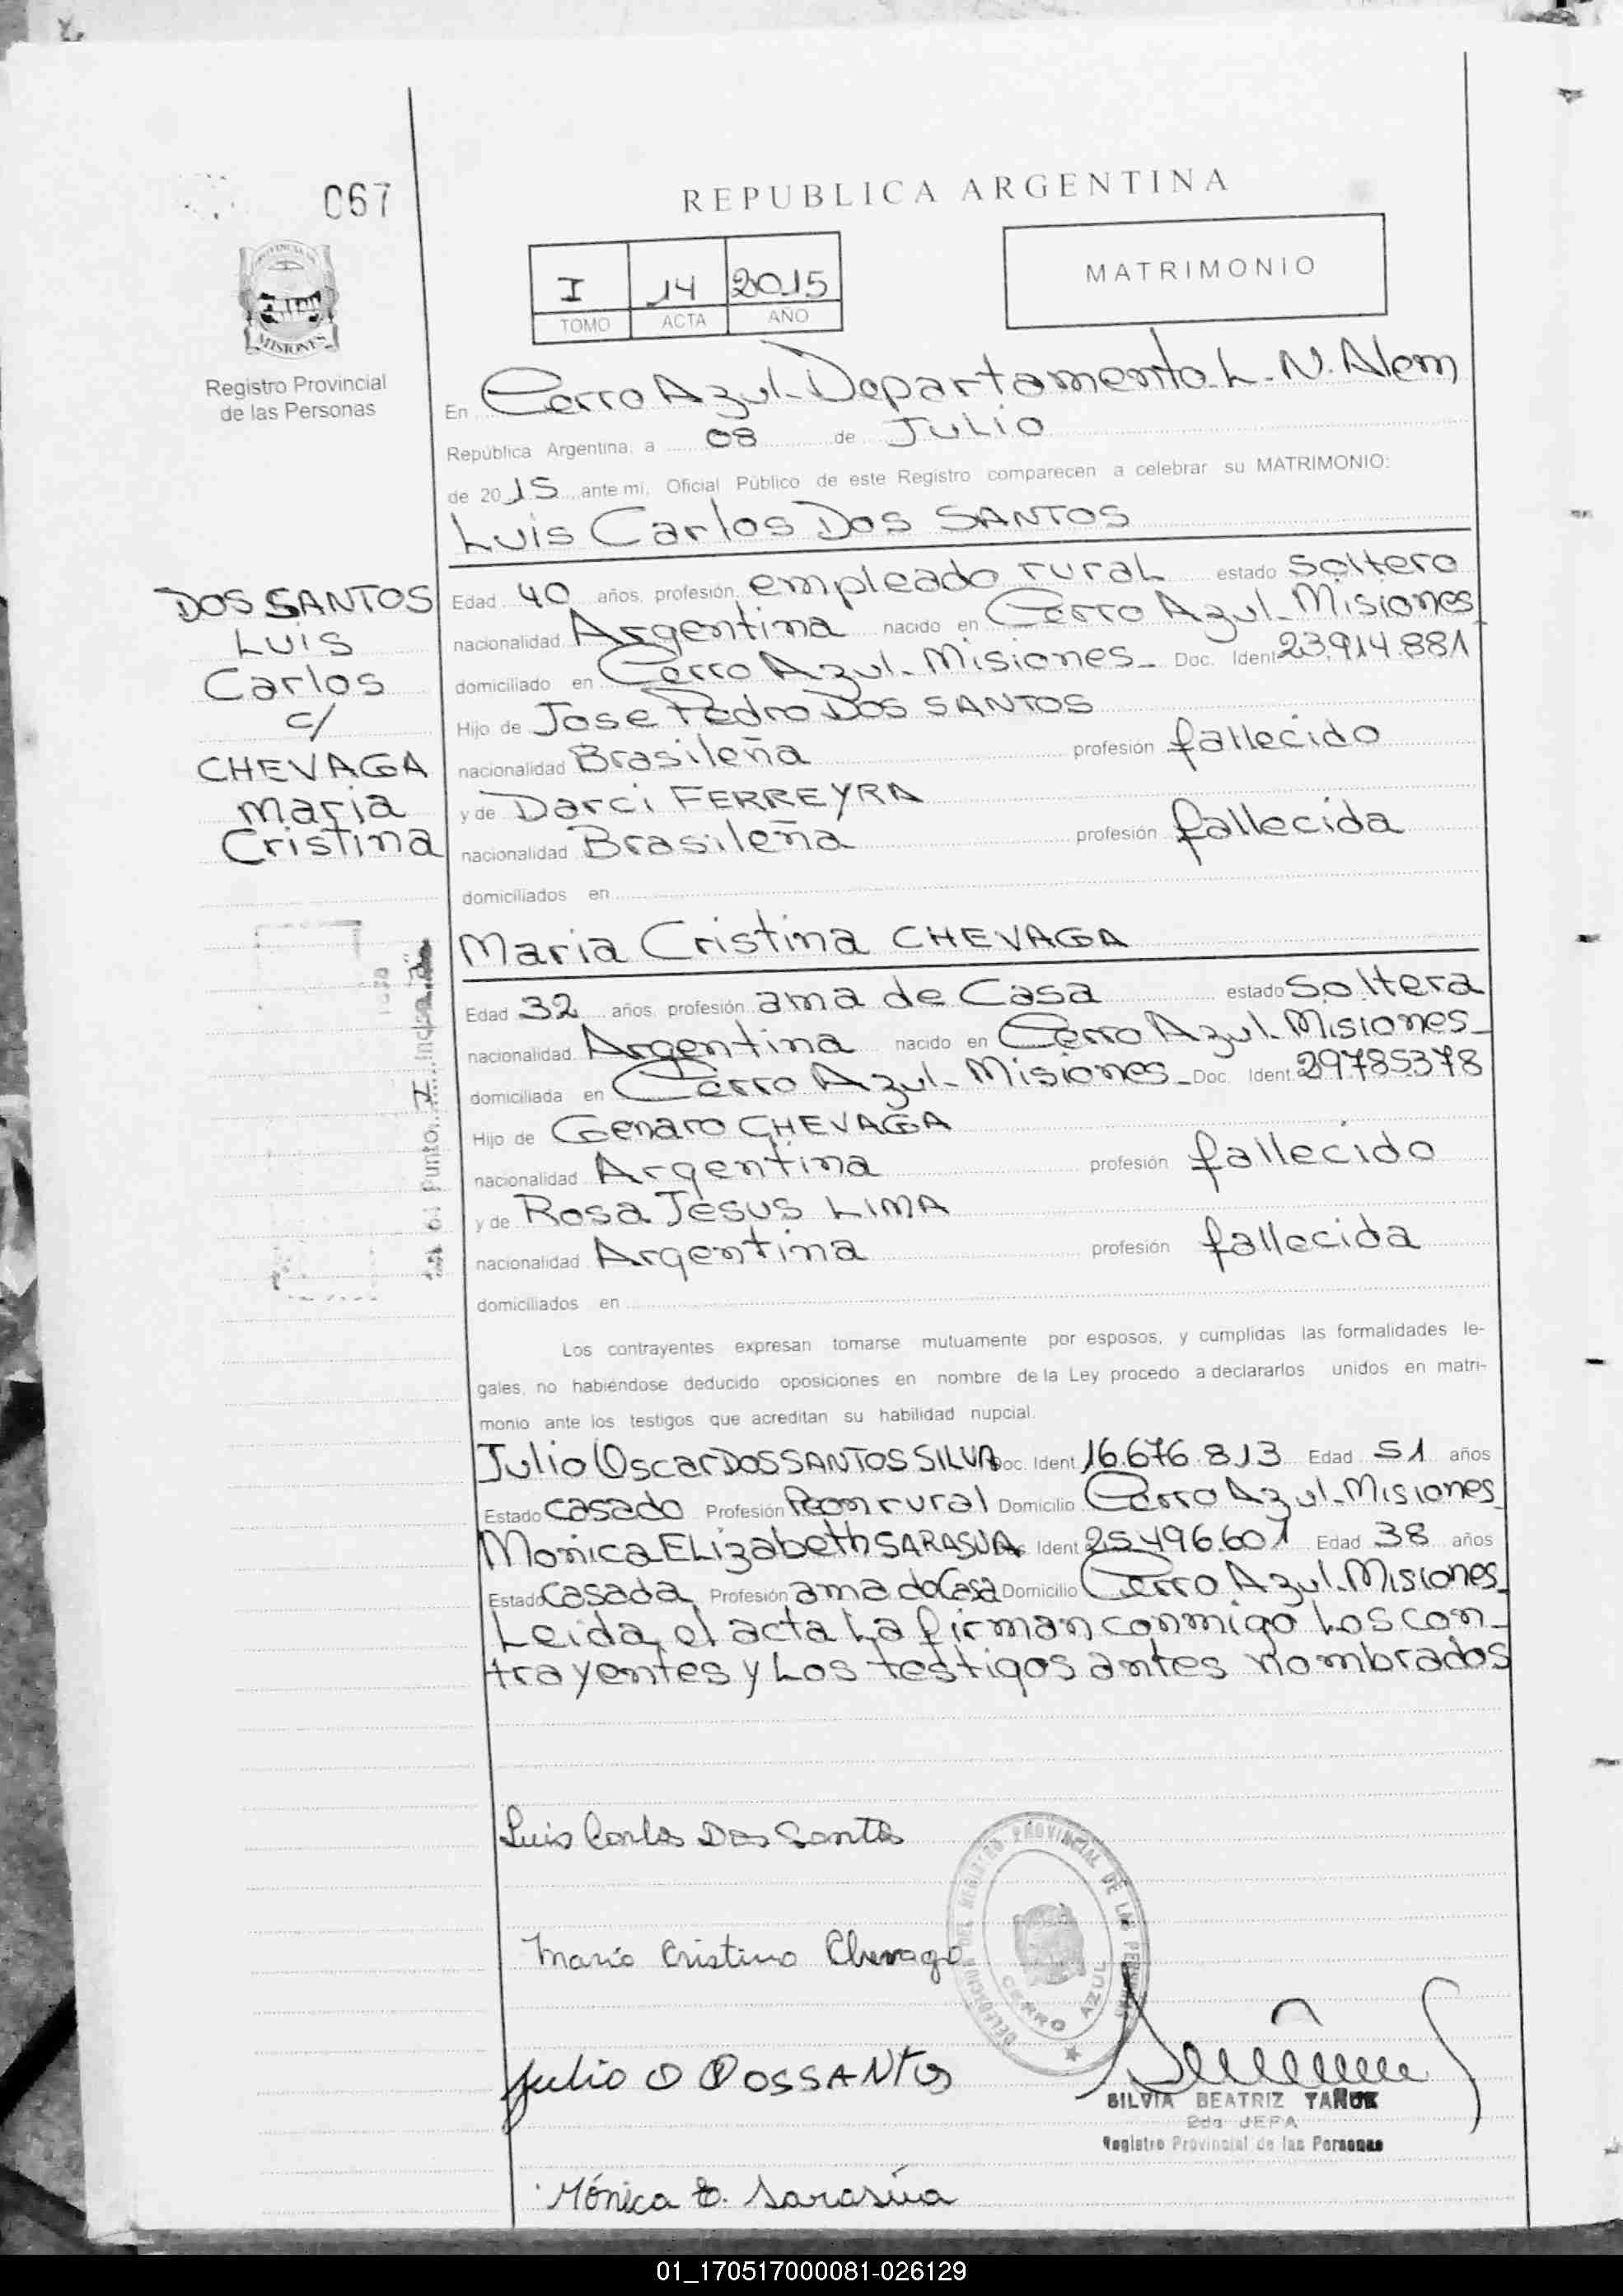 067
REPUBLICA ARGENTINA
PROVINCIA DE
MISIONES
Registro Provincial
de las Personas
I 14 2015
TOMO ACTA AÑO
MATRIMONIO
En Cerro Azul-Departamento L.N. Alem
República Argentina, a 08 de JULIO
de 2015 ante mi, Oficial Público de este Registro comparecen a celebrar su MATRIMONIO:
Luis Carlos Dos SANTOS
DOS SANTOS
Luis
Carlos
c/
CHEVAGA
Maria
Cristina
Edad 40 años, profesión empleado rural estado Soltero
nacionalidad Argentina nacido en Cerro Azul-Misiones
domiciliado en Cerro Azul-Misiones- Doc. Ident 23.914.881
Hijo de Jose Pedro DOS SANTOS
nacionalidad Brasileña profesión fallecido
y de Darci FERREYRA
nacionalidad Brasileña profesión fallecida
domiciliados en
Maria Cristina CHEVAGA
Edad 32 años, profesión ama de Casa estado Soltera
nacionalidad Argentina nacido en Cerro Azul-Misiones-
domiciliada en Cerro Azul-Misiones- Doc. Ident. 29.785.378
Hijo de Genaro CHEVAGA
nacionalidad Argentina profesión fallecido
y de Rosa Jesus LIMA
nacionalidad Argentina profesión fallecida
domiciliados en
Punto Inciso
Los contrayentes expresan tomarse mutuamente por esposos, y cumplidas las formalidades le-
gales, no habiéndose deducido oposiciones en nombre de la Ley procedo a declararlos unidos en matri-
monio ante los testigos que acreditan su habilidad nupcial.
Julio Oscar DOS SANTOS SILVA Doc. Ident 16.676.813 Edad 51 años
Estado Casado Profesión Peon rural Domicilio Cerro Azul-Misiones
Monica Elizabeth SARASUA Ident 25.496.601 Edad 38 años
Estado Casada Profesión ama de Casa Domicilio Cerro Azul-Misiones-
Leida el acta La firman conmigo Los con-
trayentes y Los testigos antes nombrados
Luis Carlos Dos Santos
DELEGACION DEL REGISTRO PROVINCIAL DE LAS PERSONAS
CERRO AZUL
Maria Cristina Chevaga
Julio O DOSSANTOS
SILVIA BEATRIZ
2da JEFA
Registro Provincial de las Personas
Mónica E. Sarasúa
01_170517000081-026129